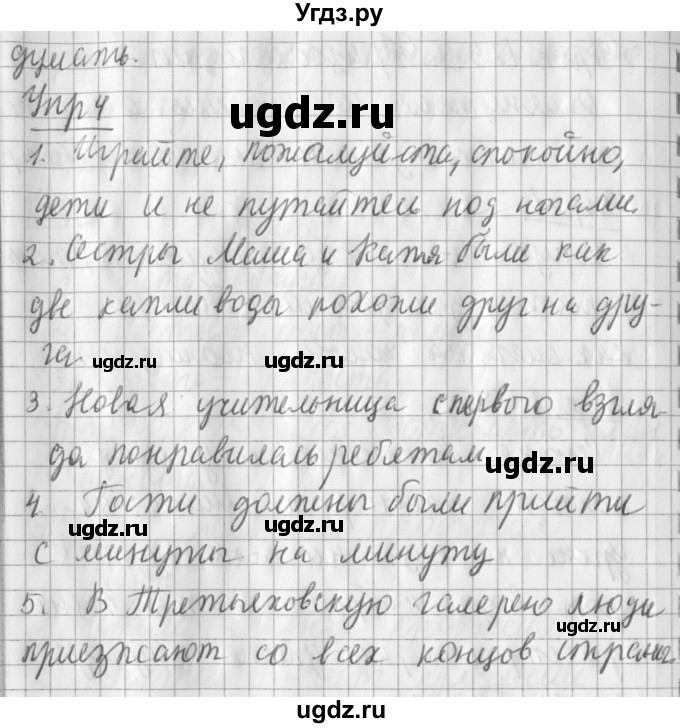 Угдз.ру
думать.
Упр 4
ugdz.ru
1. Играйте, пожалуйста, спокойно,
дети и не путайтесь под ногами.
2. Сестры Маша и Катя были как
две капли воды похожи друг на дру-
га.
ugdz.ru ugdz.ru
3. Новая учительница с первого взгля
да понравилась ребятам
ugdz.ru
4. Гости должны были прийти
ugdz.ru ugdz.ru
с минуты на минуту
5. В Третьяковскую галерею люди
ugdz.ru
приезжают со всех концов страны.
ugdz.ru